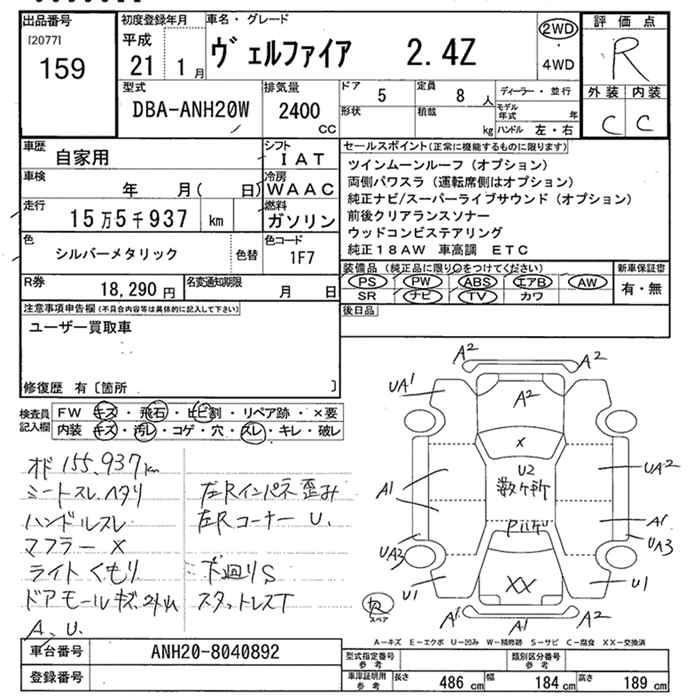 出品番号
[2077]
159
初度登録年月
平成
21 1月
車名・グレード
ヴェルファイア 2.4Z
2WD
・
4WD
評価点
R
外装 内装
C C
型式
DBA-ANH20W
排気量
2400
CC
ドア
5
定員
8 人
形状
積載
kg
ディーラー・並行
モデル年式 年
ハンドル 左・右
車歴
自家用
シフト
IAT
車検
年 月( 日)
冷房
WAAC
走行
15万5千937 km
燃料
ガソリン
色
シルバーメタリック
色替
色コード
1F7
R券
18,290円
名変通知期限
月 日
セールスポイント(正常に機能するものに限ります)
ツインムーンルーフ(オプション)
両側パワスラ(運転席側はオプション)
純正ナビ/スーパーライブサウンド(オプション)
前後クリアランスソナー
ウッドコンビステアリング
純正18AW 車高調 ETC
装備品(純正品に限り○をつけてください)
PS PW ABS エアB AW
SR ナビ TV カワ
新車保証書
有・無
後日品
注意事項申告欄(不具合内容等は具体的に記入して下さい)
ユーザー買取車
修復歴 有〔箇所 〕
検査員記入欄
FW キズ・飛石・ヒビ割・リペア跡・×要
内装 キズ・汚レ・コゲ・穴・スレ・キレ・破レ
オド 155,937km
シートスレ、ヘタリ
ハンドルスレ
マフラー ×
ライトくもり
ドアモールキズ
A、U.
左Rインパネ歪み
左Rコーナー U.
下廻りS
スタットレスT
A2 A2
UA1
A2
×
U2
数ヶ所
UA2
A1
A1
UA3
UA3
U1
XX
U1
R
スペア
A1 A1 A2
A-キズ E-エクボ U-凹み W-補修跡 S-サビ C-腐食 XX-交換済
車台番号
ANH20-8040892
登録番号
型式指定番号
参考
類別区分番号
参考
車庫証明用
参考
長さ 486 cm 幅 184 cm 高さ 189 cm